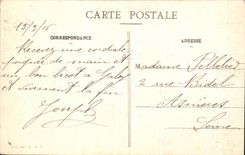 CARTE POSTALE
CORRESPONDANCE
ADRESSE
15/3/16
Recevez une cordiale
poignée de main et
un bon bécot à Gaby
et vivement la fin
Joseph
Madame
2 rue Bidel
Asnières
Seine